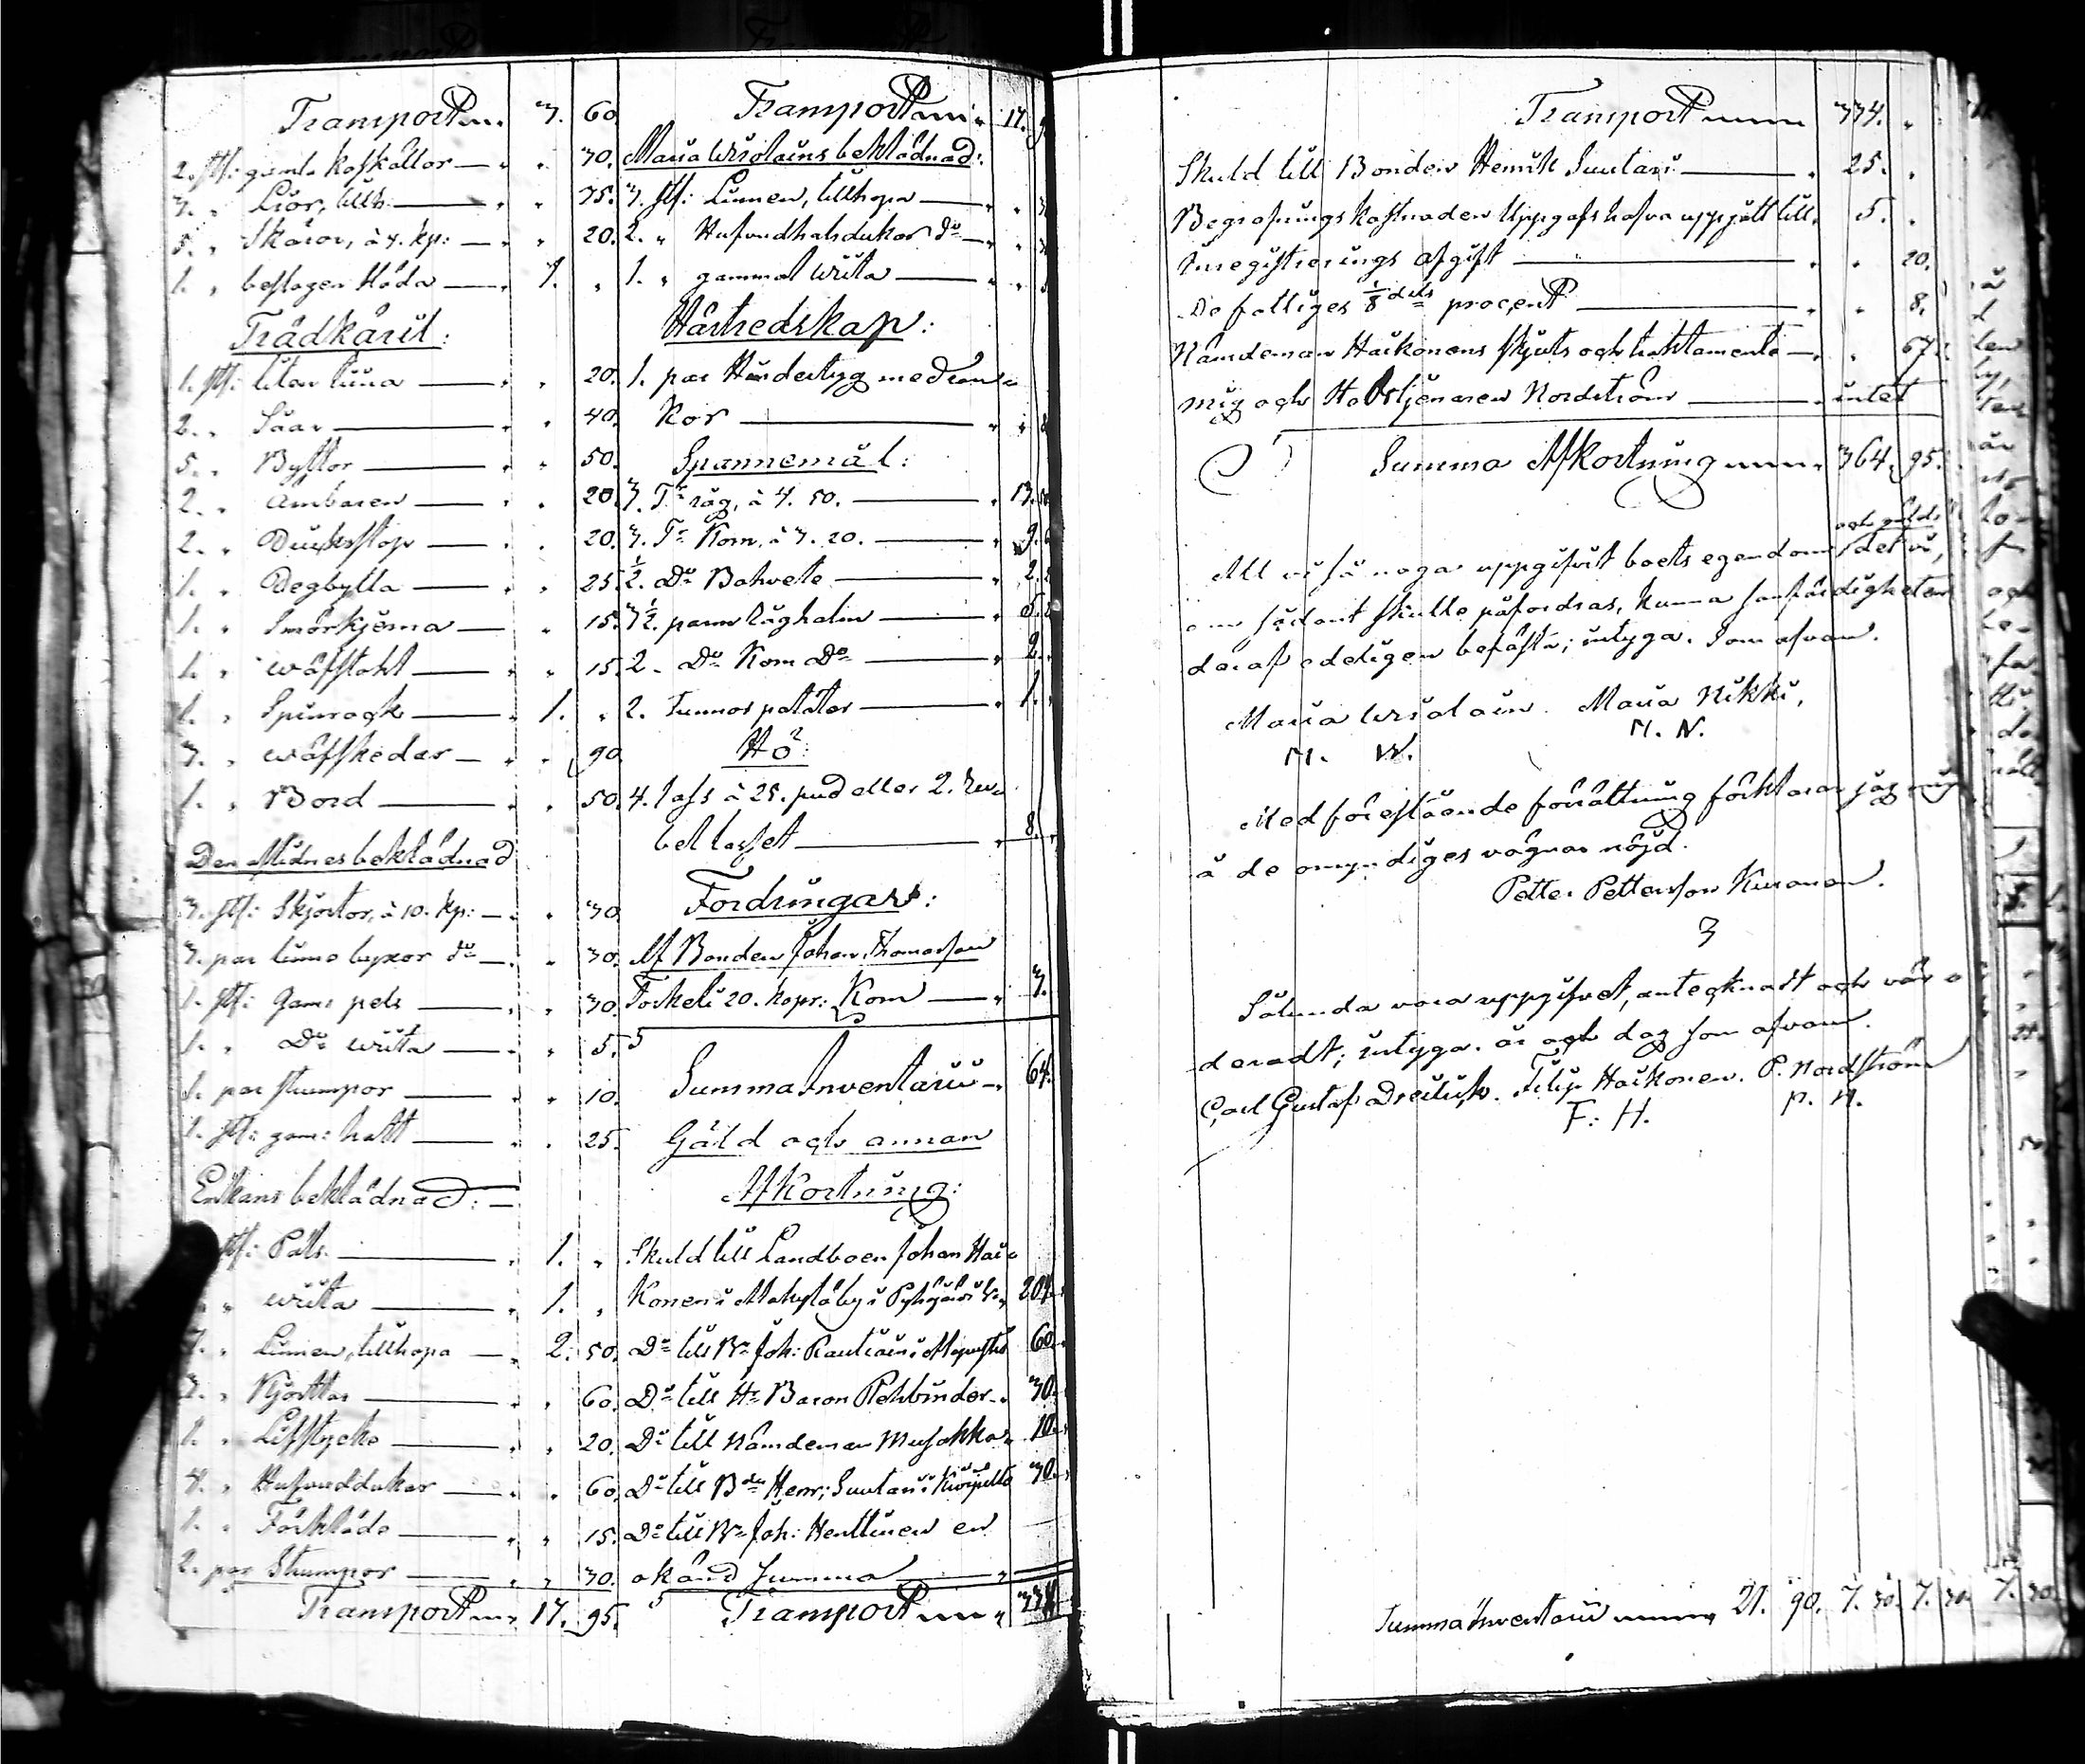 Transport 3. 60.
2. st: gamla koskällor — " 30.
3. " Liar, tills: — " 75.
5. " Skäror, à 4. kp: — " 20.
1. " beslagen Släda — 1. "
Trädkäril:
1. st: liten tina — " 20.
2. " Såar — " 40.
5. " Byttor — " 50.
2. " Ambaren — " 20.
2. " Dricksstop — " 20.
1. " Degbytta — " 25.
1. " Smörkjerna — " 15.
1. " wäfstohl — " 15.
1. " Spinrock — 1. "
3. " wäfskedar — " 90.
1. " Bord — " 50.
Den Aflidnes beklädnad
3. st: Skjortor, à 10. kp: — " 30.
3. par linne byxor do — " 30.
1. st: Gam: pels — " 30.
1. " Do wiita — " 5.
1. par strumpor — " 10.
1. st: gam: hatt — " 25.
Enkans beklädnad: —
st: Päls — 1. "
" wiita — 1. "
" Linnen, tillhopa — 2. 50.
" Kjortlar — " 60.
1. " Lifstycke — " 20.
4. " Hufvuddukar — " 60.
1. " Förkläde — " 15.
2. par Strumpor — " 30.
Transport 17. 95.
Transport 17.
Maria beklädnad:
3. st: Linnen, tillhopa —
2. " Hufvudhalsdukar do —
1. " gammal wiita —
Hästredskap:
1. par
Kor —
Spannemål:
3. Tr råg, à 4. 50. — 13. 50
3. Tr Korn, à 3. 20. — 9.
½. Do Bohvete — 2.
3½. parm råghalm — 5.
2 - Do Korn Do — 2.
2. Tunnor potäter — 1.
Hö:
4. lass à 25. pud eller 2. Ru
bel lasset — 8.
Fordringar:
Af Bonden Johan Thomasson
Torkeli 20. kapr: Korn — 3.
Summa Inventarii 64.
Gäld och annan
Afkortning:
Skuld till Landboen Johan Hai
konen i i Pyhäjärvi
Do till Bn Joh: Rautiain i 60.
Do till Hr Baron Rehbinder 30.
Do till Nämdeman Musakka 10.
Do till Bden Henr: Suutari i 30.
Do till Bn Joh: Henttinen en
okänd Summa —
Transport 334.
Transport 334. "
Skuld till Bonden Henrik Suutari — 25. "
Begrafnings kostnaden Uppgafs hafva uppgått till 5. "
Inregistrerings afgift — " 20.
De fattiges ⅛dels procent — " 8.
Nämdeman Haikonens skjuts och traktamente — " 67.
mig och Nordström — intet
Summa Afkortning 364. 95.
och gäld
Att vi så noga uppgifvit boets egendom det vi,
om sådant skulle påfordras, kunna sanfärdigheten
daraf edeligen befästa; intyga. Som ofvan.
Maria Maria Nikki,
M. W. M. N.
Med förestående förrättning förklarar jag mig
å de omyndiges vägnar nöjd.
Petter Pettersson Kuronen.
Sålunda vara uppgifvet, antecknadt och vär
deradt; intyga. år och dag som ofvan.
Carl Gustaf Filip Haikonen. P. Nordström
F: H. P. N.
Summa Inventarii 21. 90. 7. 30. 7. 30. 7. 30.